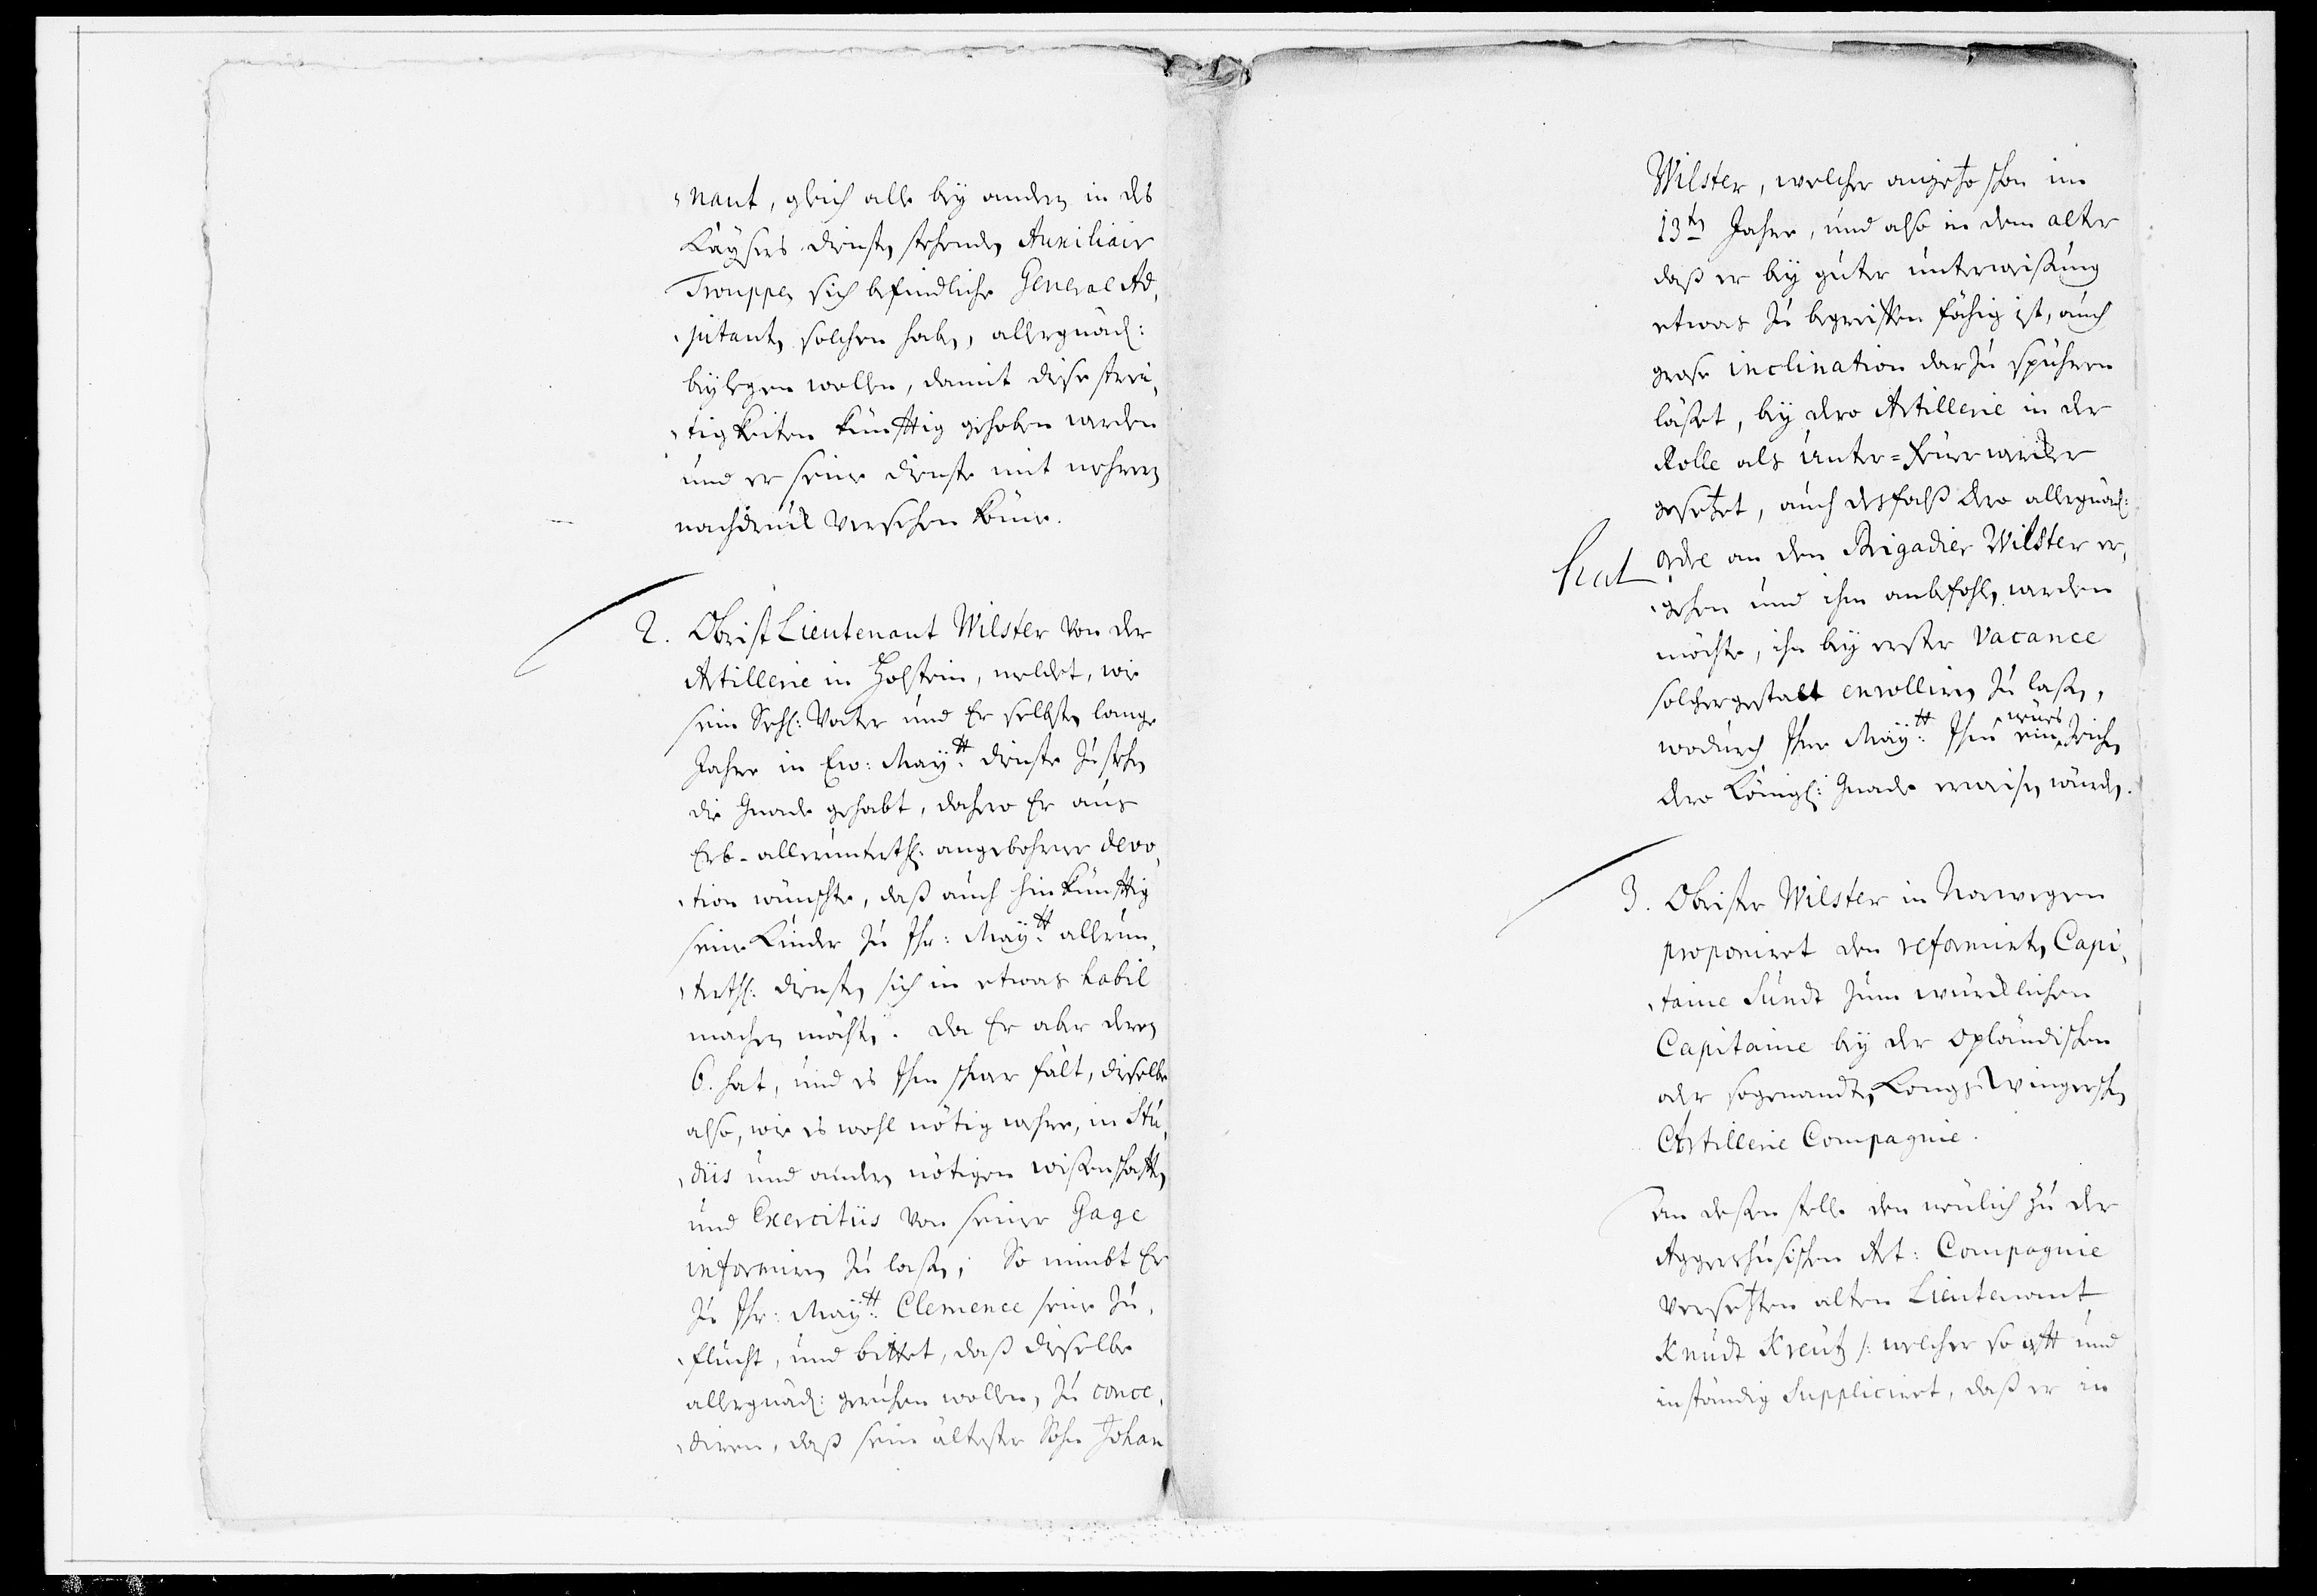 nant, gleich alle bey andern in des
Käysers dienst, stehende, Auxiliair
Trouppen sich befindliche General Ad,
jutant, solchen haben, allergnäd:
beylegen wollen, damit diese strei,
tigkeiten künfftig gehoben werden
und er seine dienste mit mehrern
nachdruck versehen könne.
2. Obrist Lieutenant Wilster von der
Artillerie in Holstein, meldet, wie
sein Sehl: Vater und Er selbsten lange
Jahre in Ew: Mayᵗᵗ: dienste zu stehen
die Gnade gehabt, dahero Er aus
Erb-allerunterth: angebohrner devo,
tion wünschte, daß auch hinkünfftig
seine Kinder zu Ihr: Mayᵗᵗ: allerun,
terth: diensten sich in etwas habil
machen möchten. Da Er aber deren
6. hat, und es Ihm schwer fält, dieselbe
also, wie es wohl nötig wehre, in Stu,
diis und andern nötigen wißenschafften
und Exercitiis von seiner Gage
informiren zu laßen; So nimbt Er
zu Ihr: Mayᵗᵗ: Clemence seine Zu,
flucht, und bittet, daß dieselbe
allergnäd: geruhen wollen, zu conce,
diren, daß sein ältester Sohn Johan
Wilster, welcher anjetzo schon im
13ten Jahre, und also in dem alter
daß er bey guter unterweißung
etwas zu begreiffen fähig ist, auch
grose inclination darzu spühren
läßet, bey dero Artillerie in der
Rolle als Unter=Feuerwercker
gesetzet, auch desfalß dero allergnäd:
hat
ordre an den Brigadier Wilster er,
gehen und ihm anbefohlen werden
möchte, ihn bey erster Vacance
solchergestalt enrolliren zu laßen,
wodurch Ihre Mayᵗᵗ: Ihm ein neues Zeichen
dero Königl: Gnade erweisen würden.
3. Obrister Wilster in Norwegen
proponiret den reformirten Capi,
taine Sundt zum würcklichen
Capitaine bey der Opländischen
oder sogenandten Kongs Wingerschen
Artillerie Compagnie.
An deßen stelle den neulich zu der
Aggershusischen Art: Compagnie
versetzten alten Lieutenant
Knudt Kreutz /: welcher so offt und
inständig Suppliciret, daß er in